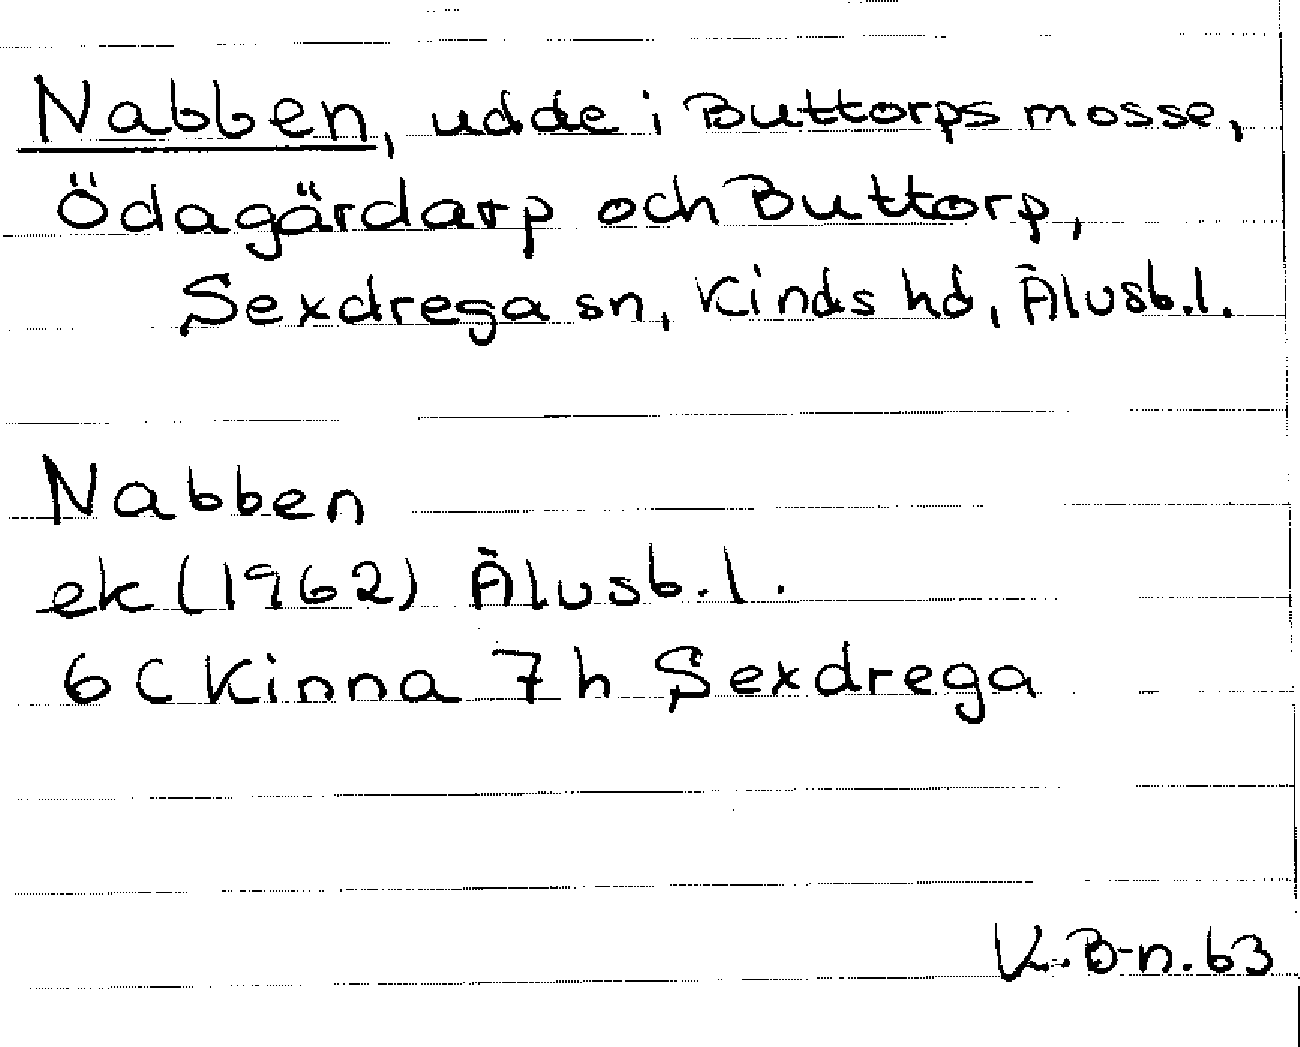 Nabben, udde i Buttorps mosse,
Ödagärdarp och Buttorp,
Sexdrega sn, Kinds hd, Älvsb.l.
Nabben
ek (1962) Älvsb.l.
6 C Kinna 7 h Sexdrega
K.B-n.63